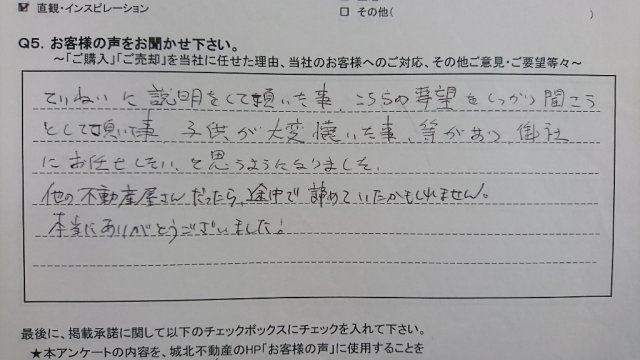 ☑ 直観・インスピレーション
□ その他(　　　)
Q5. お客様の声をお聞かせ下さい。
～「ご購入」「ご売却」を当社に任せた理由、当社のお客様へのご対応、その他ご意見・ご要望等々～
ていねいに説明をして頂いた事、こちらの要望をしっかり聞こう
として頂いて事、子供が大変懐いた事、等があり、御社
にお任せしたい、と思うようになりました。
他の不動産屋さんだったら、途中で諦めていたかもしれません。
本当にありがとうございました!
最後に、掲載承諾に関して以下のチェックボックスにチェックを入れて下さい。
★本アンケートの内容を、城北不動産のHP「お客様の声」に使用することを